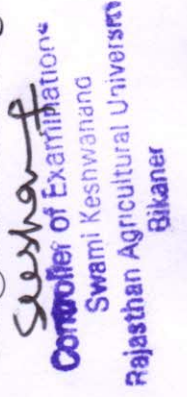 Controller of Examinations
Swami Keshwanand
Rajasthan Agricultural University
Bikaner